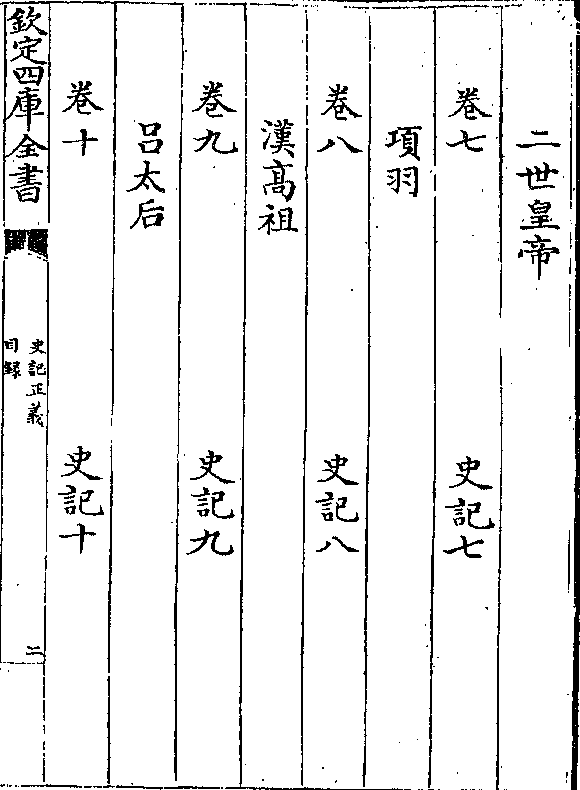 二世皇帝
卷七 史記七
項羽
卷八 史記八
漢髙祖
卷九 史記九
吕太后
卷十 史記十
欽定四庫全書
史記正義
目録
二